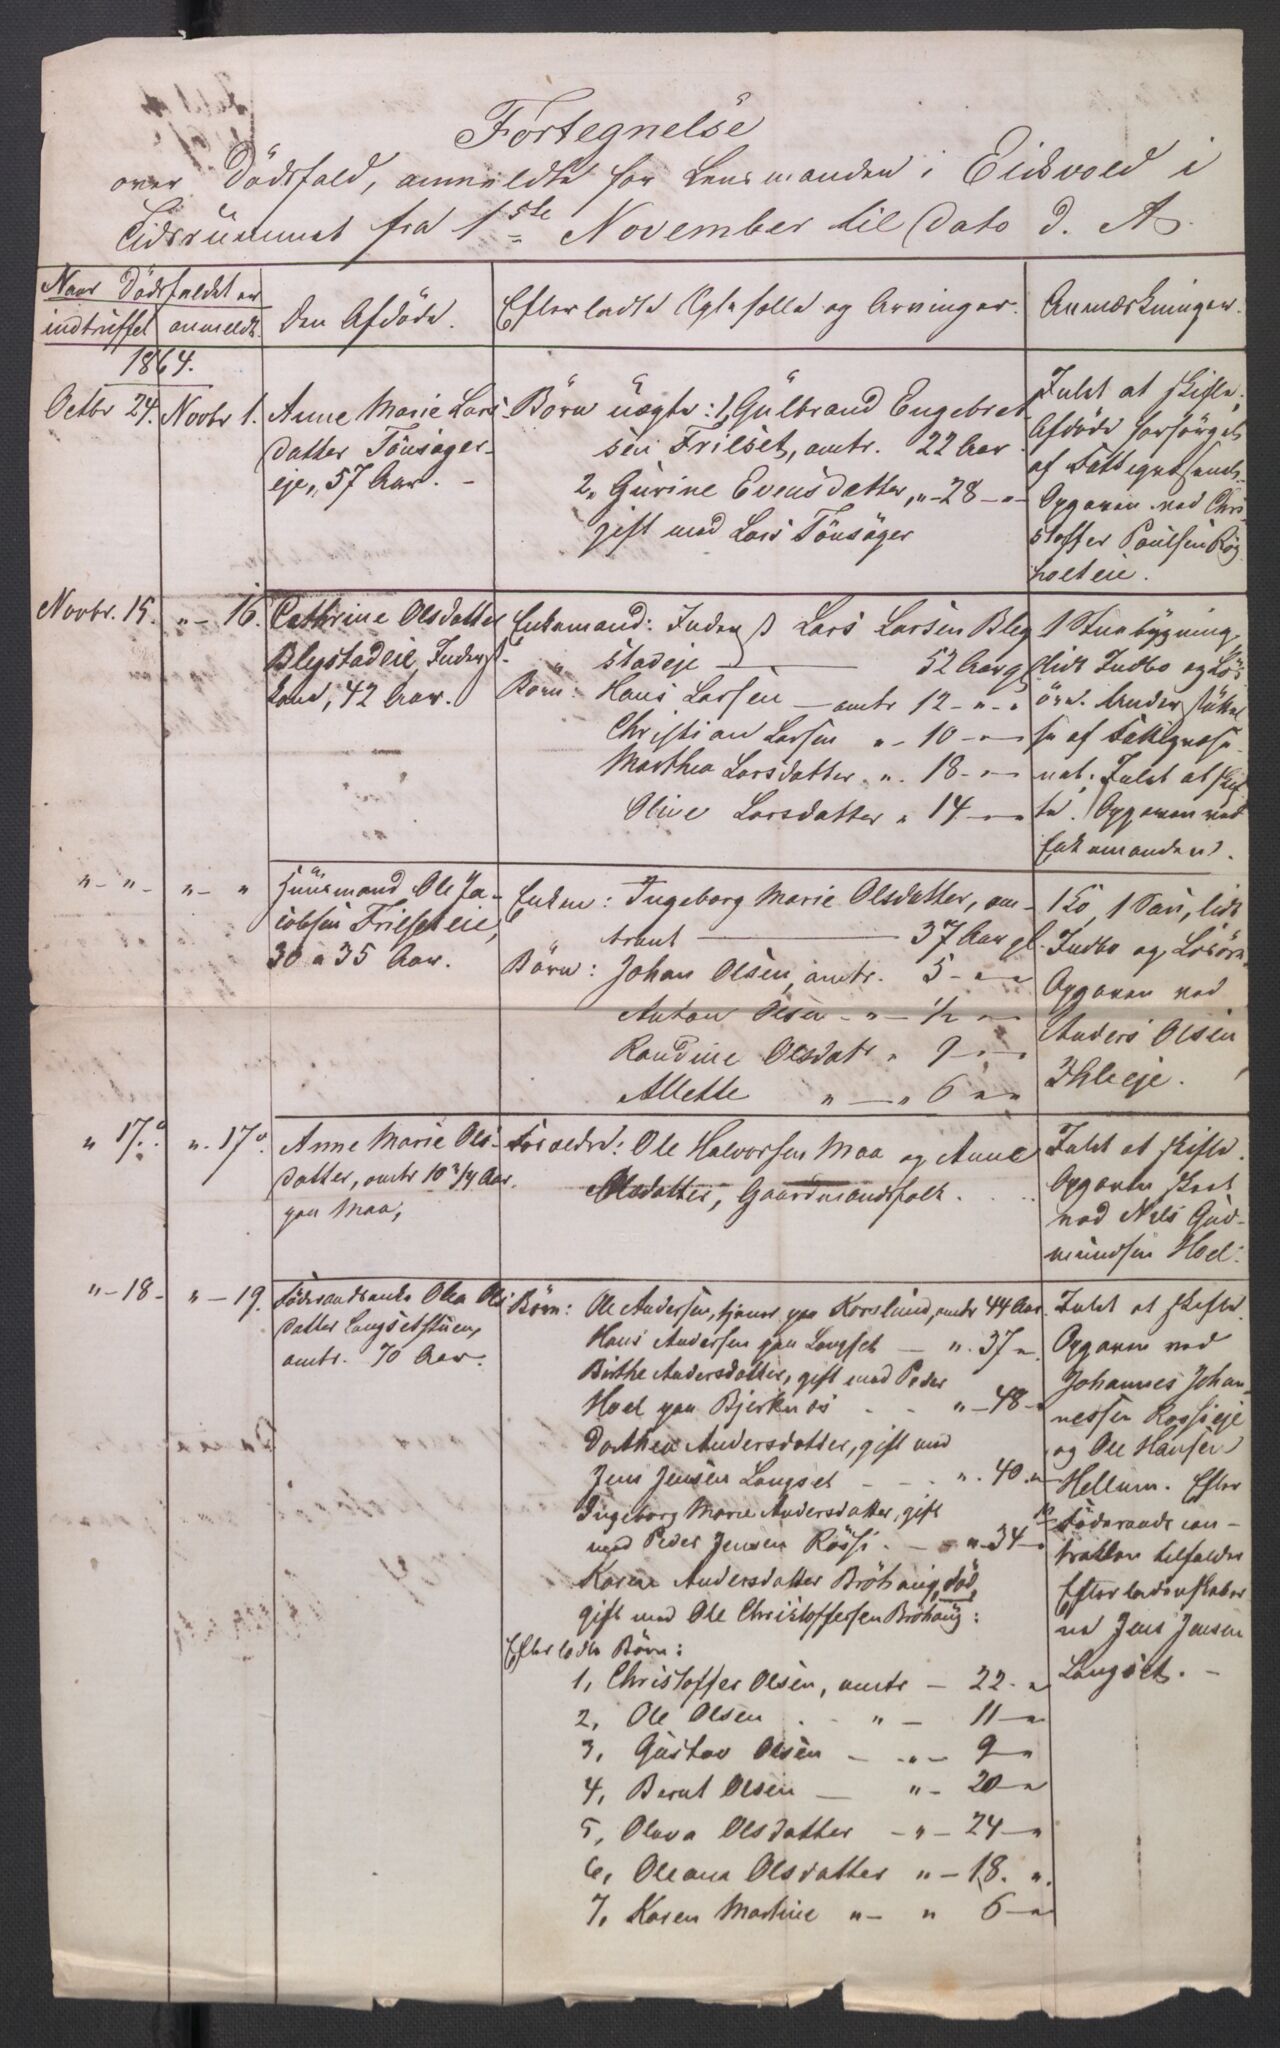 Fortegnelse
over Dödsfald, anmeldte for Lensmanden i Eidsvold i
Tidsrummet fra 1ste November til Dato d. A.
Naar Dödsfaldet er
indtruffet anmeldt.
Den Afdöde.
Efterladte Ægtefælle og Arvinger.
Anmærkninger.
1864.
Octbr 24. Novbr 1.
Anne Marie Lars-
datter Tönsager-
eje, 57 Aar. -
Börn uægte: 1, Gulbrand Engebret-
sen Frilset, omtr. 22 Aar
2, Gurine Evensdatter, " - 28 - " -
gift med Lars Tönsager
Intet at skifte.
Afdöde forsörget
af Fattigvæsenet.
Opgaven ved Chri-
stoffer Paulsen Rög-
holteie.
Novbr. 15. " - 16.
Cathrine Olsdatter
Blegstadeie, Inderst-
kone, 42 Aar.
Enkemand: Inderst Lars Larsen Bleg-
stadeje - 52 Aar gl
Börn: Hans Larsen - omtr 12 - " -
Christian Larsen " - 10 - " -
Marthea Larsdatter " . 18 - " -
Oline Larsdatter " 14 - " -
1 Stuebygning,
lidt Indbo og Lös-
öre. Understöttel-
se af Fattigvæse-
net. Intet at skif-
te. Opgaven ved
Enkemanden.
" - " - " - "
Huusmand Ole Ja-
cobsen Frilseteie,
30 a 35 Aar.
Enken: Ingeborg Marie Olsdatter, om-
trent - 37 Aar gl.
Börn: Johan Olsen, omtr. 5 - " -
Anton Olsen - " - 1/2 " -
Randine Olsdatr " 9 - " -
Allette " - " 6 " -
1 Ko, 1 Sau, lidt
Indbo og Lösöre.
Opgaven ved
Anders Olsen
Ihleeje.
" 17. " . 17
Anne Marie Ols-
datter, omtr 10 3/4 Aar,
paa Maa,
Forældre: Ole Halvorsen Maa og Anne
Olsdatter, Gaardmandsfolk.
Intet at skifte.
Opgaven skeet
ved Nils Gud-
mundsen Hoel.
" - 18 - " - 19.
Föderaadsenke Olea Ols-
datter Langsetstuen,
omtr. 70 Aar.
Börn: Ole Andersen, tjener paa Korslund, omtr 44 Aar.
Hans Andersen paa Langset - " . 37 " .
Birthe Andersdatter, gift med Peder
Hoel paa Bjerknæs . . " - 48 - "
Dorthea Andersdatter, gift med
Jens Jensen Langset - - . " . 40 . "
Ingeborg Marie Andersdatter, gift
med Peder Jensen Rössi . - " - 34 - "
Karen Andersdatter Bröhaug, död,
gift med Ole Christoffersen Bröhaug:
Efterladte Börn:
1, Christoffer Olsen, omtr - 22 - "
2, Ole Olsen . . " - 11 - "
3, Gustav Olsen - " - 9 - "
4, Bernt Olsen - " - 20 - "
5, Olava Olsdatter - " - 24 - "
6, Oleana Olsdatter " - 18. " .
7, Karen Martine " - " 6 - "
Intet at skifte.
Opgaven ved
Johannes Johan-
nessen Rossieje
og Ole Hansen
Hellum. Efter
Föderaadscon-
trakten tilfalder
Efterladenskaber-
ne Jens Jensen
Langset. -